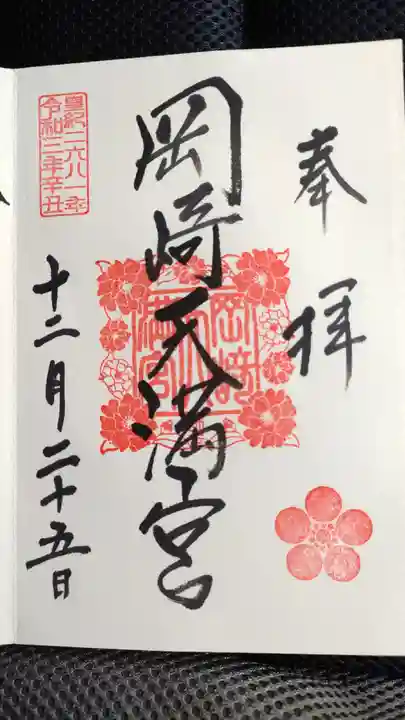 奉拝
岡崎天満宮
岡崎
天
満宮
皇紀二六八一年
令和三年辛丑
十二月二十五日